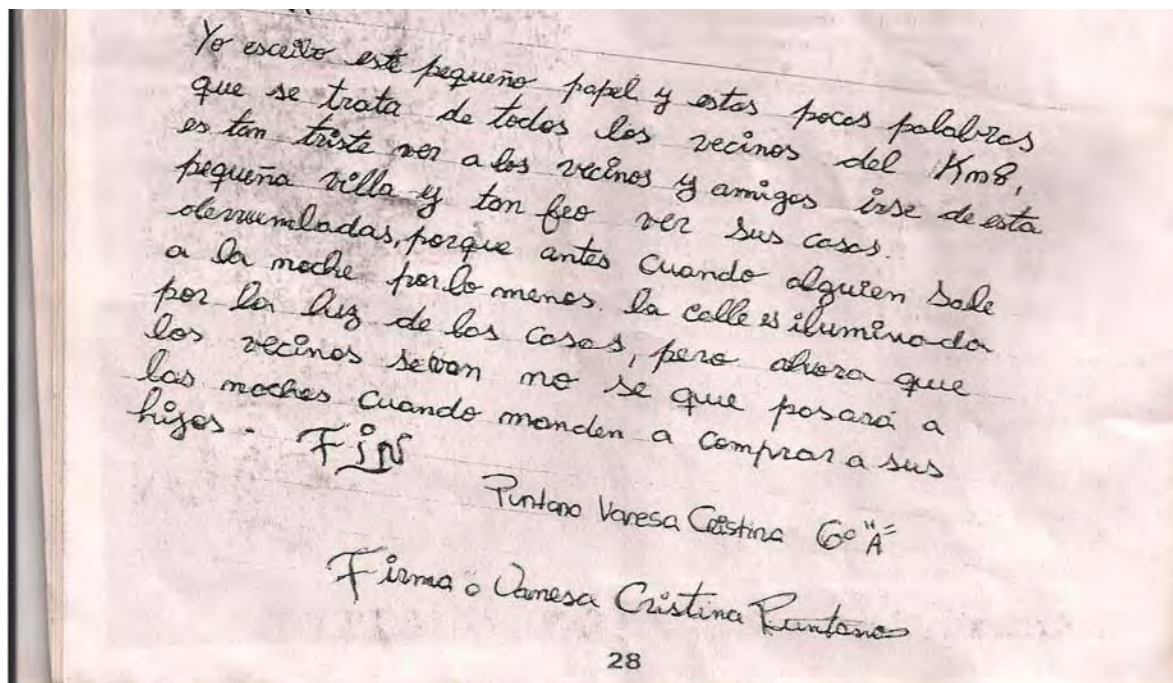 Yo escribo este pequeño papel y estas pocas palabras
que se trata de todos los vecinos del Km8,
es tan triste ver a los vecinos y amigos irse de esta
pequeña villa y tan feo ver sus casas.
derrumbadas, porque antes cuando alguien sale
a la noche por lo menos. la calle es iluminada
por la luz de las casas, pero ahora que
los vecinos sevan no se que pasará a
las noches cuando manden a comprar a sus
hijos. FiN
Puntano Vanesa Cristina 6º "A"
Firma: Vanesa Cristina Puntano
28